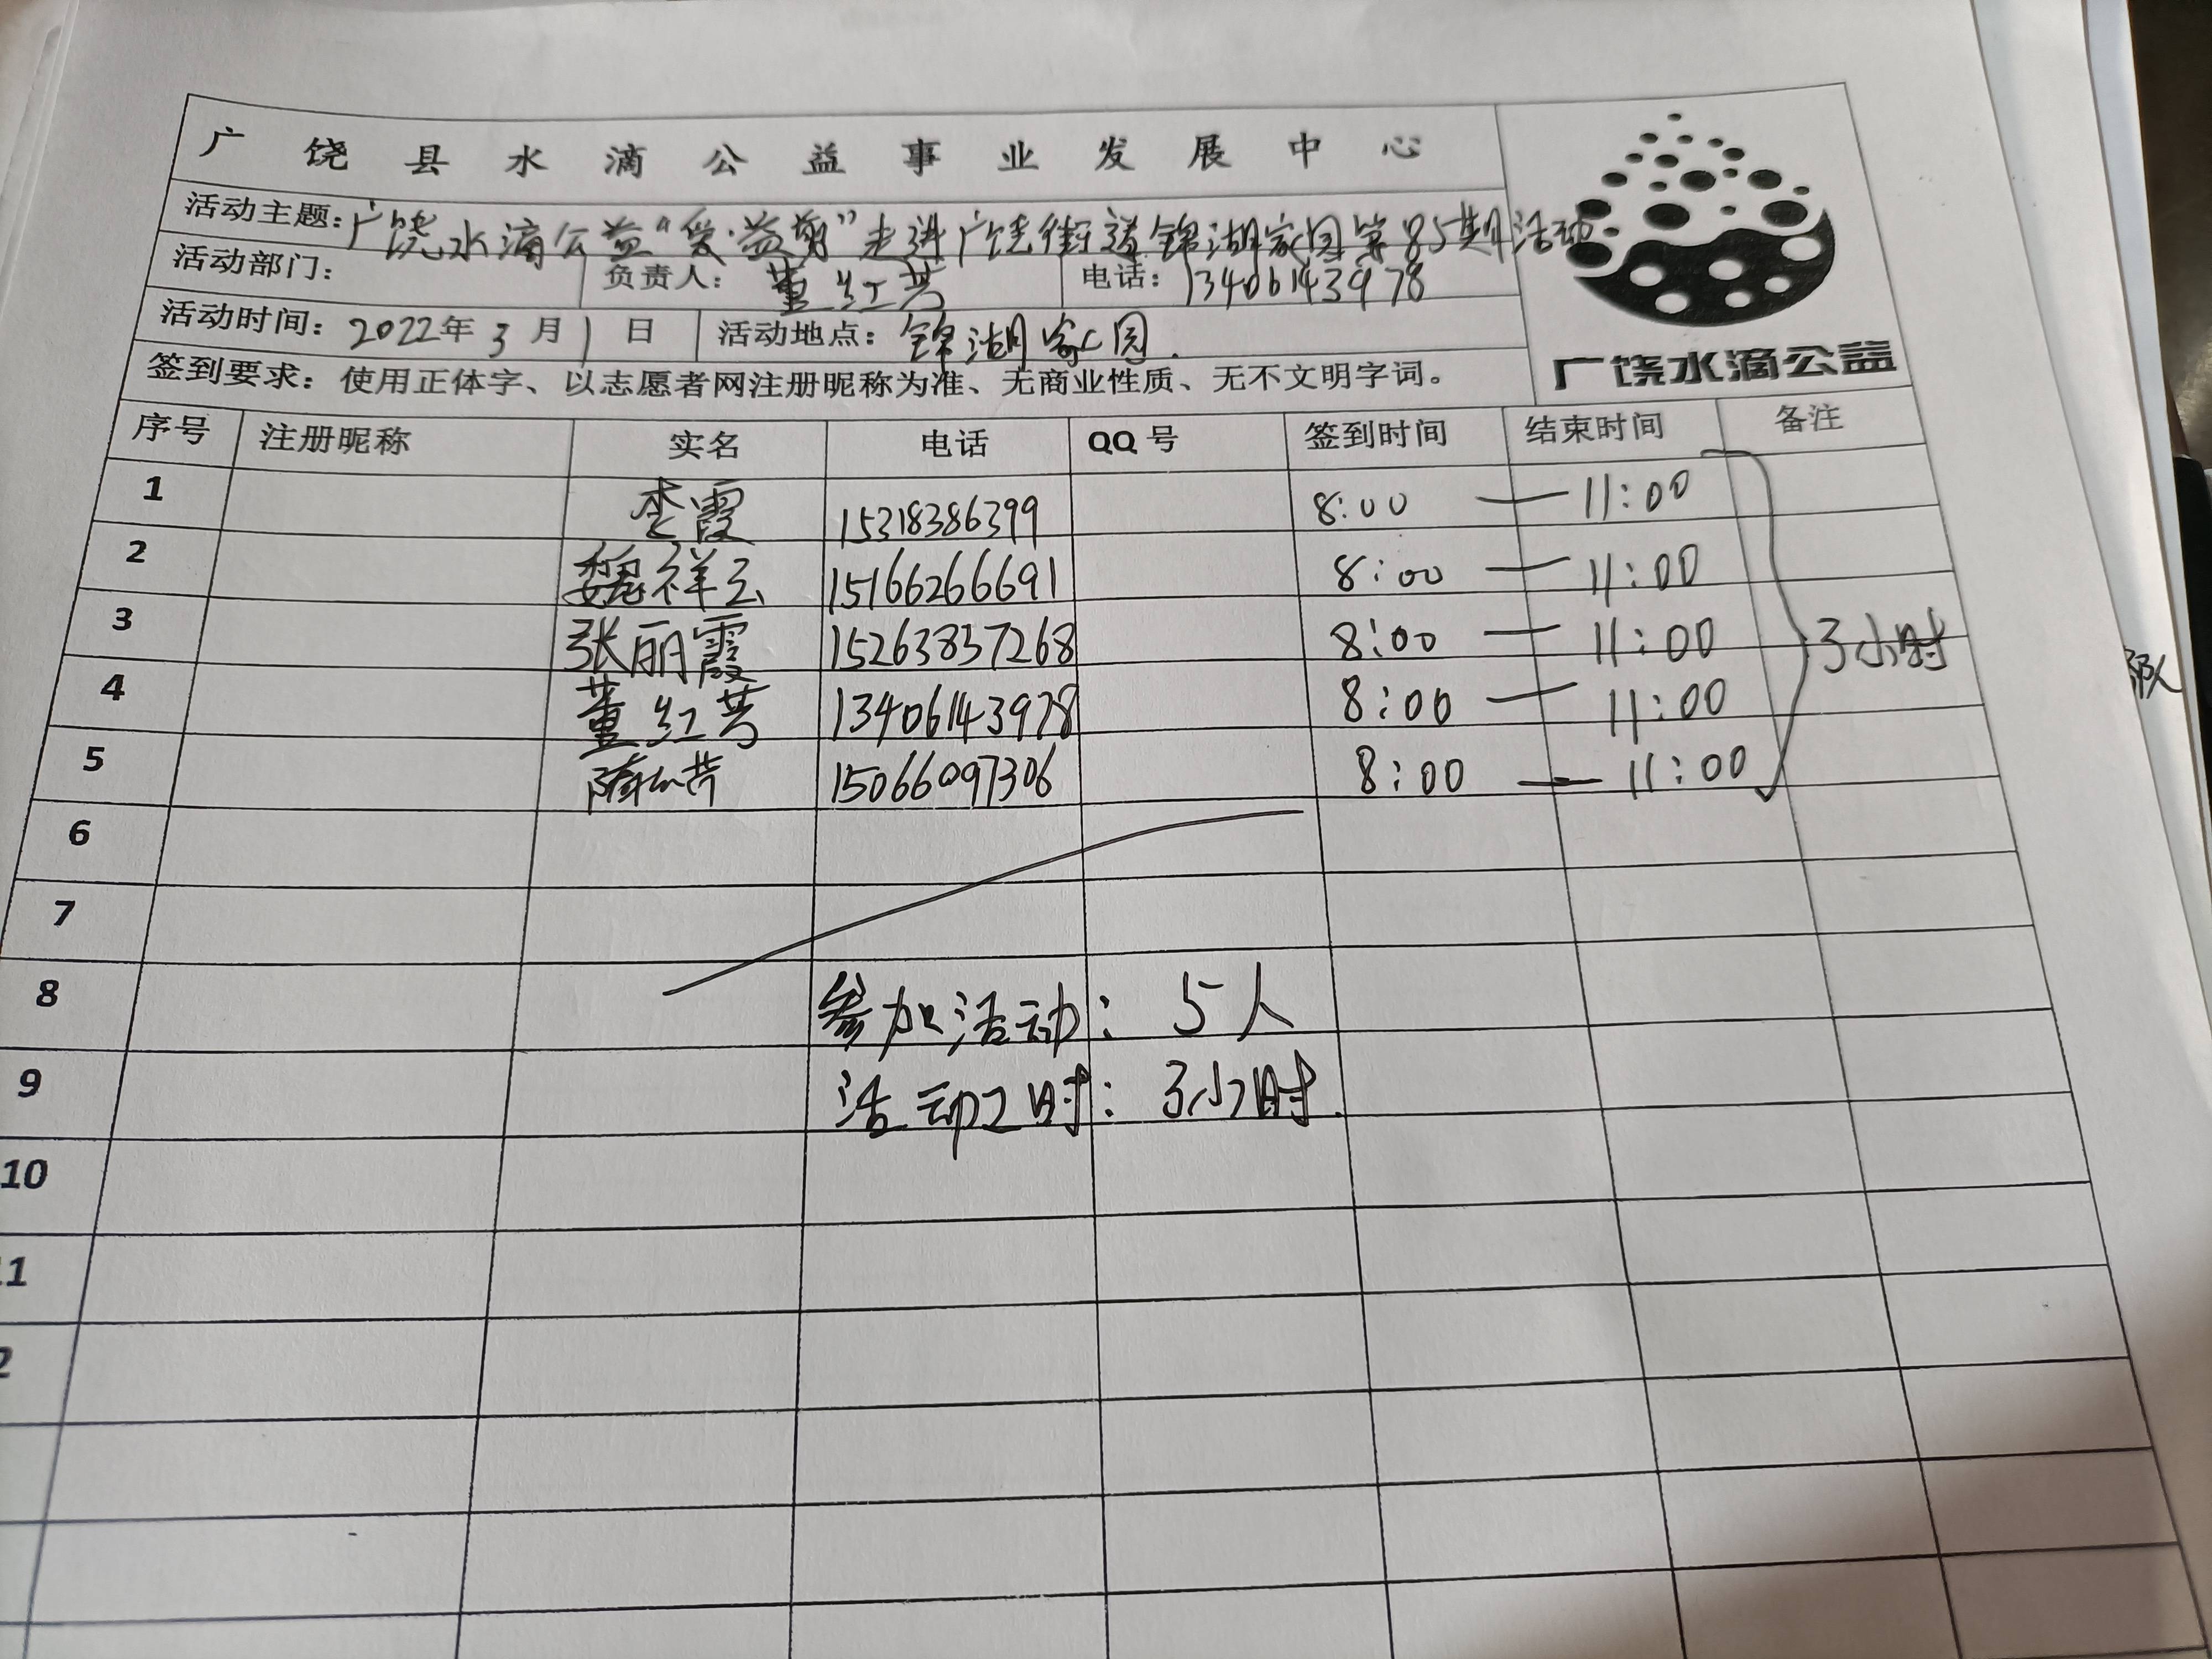 广饶县水滴公益事业发展中心
活动主题:广饶水滴公益“爱·益剪”走进广饶街道锦湖家园第85期活动
活动部门: 负责人: 董红芸 电话: 13406143978
活动时间: 2022年3月1日 活动地点: 锦湖家园.
签到要求: 使用正体字、以志愿者网注册昵称为准、无商业性质、无不文明字词。
广饶水滴公益
序号 注册昵称 实名 电话 QQ号 签到时间 结束时间 备注
1 李霞 15318386399 8:00 — 11:00
2 魏祥云 15166266691 8:00 — 11:00
3 张丽霞 15263837268 8:00 — 11:00 3小时
4 董红芸 13406143978 8:00 — 11:00
5 15066097306 8:00 — 11:00
6
7
8 参加活动: 5人
9 活动工时: 3小时.
10